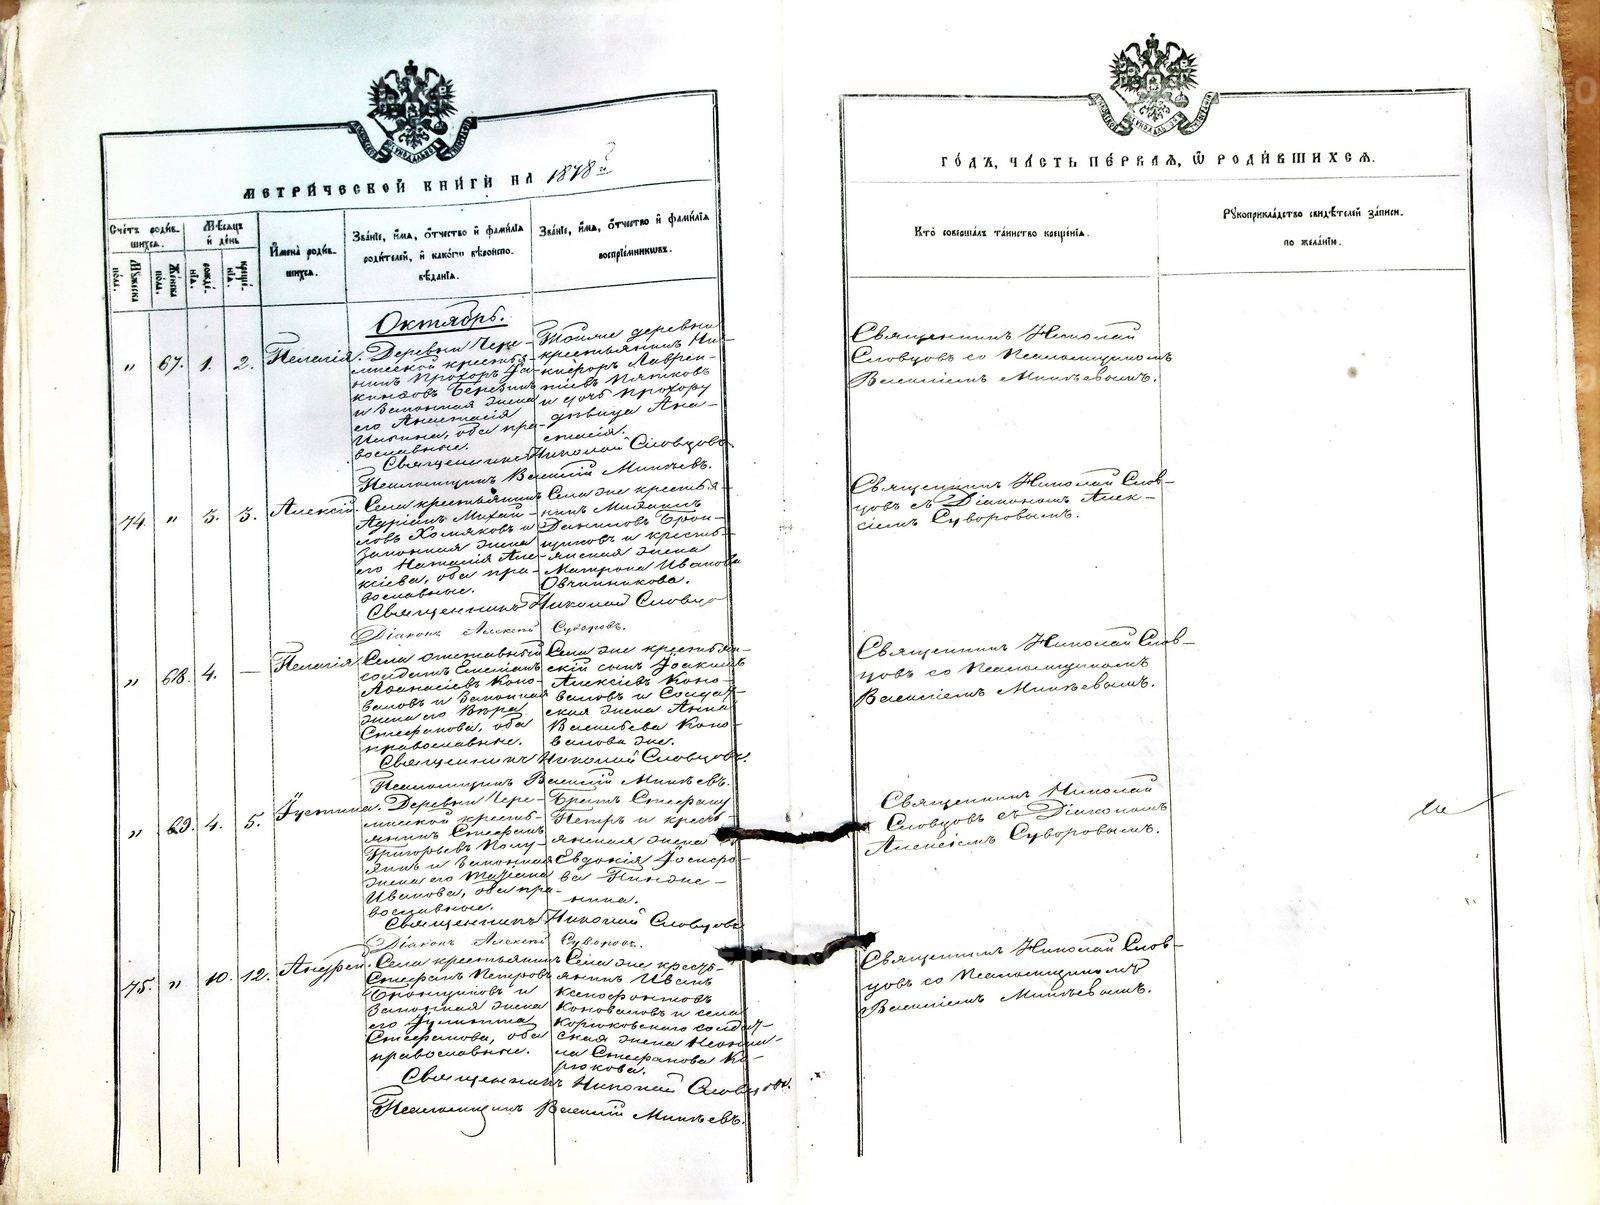 МЕТРИ́ЧЕСКОЙ КНИ́ГИ НА 1878й
ГО́ДЪ, ЧА́СТЬ ПЕ́РВАЯ, Ѿ РОДИ́ВШИХСЯ.
Сче́тъ роди́в-
шихся.
Му́жеска по́ла.
Же́нска по́ла.
Мѣ́сяцъ
и де́нь
рожде́-
нїя.
креще́-
нїя.
Имена̀ роди́в-
шихся.
Зва́нїе, и́мя, о́тчество и фами́лїя
роди́телей, и како́гѡ вѣроиспо-
вѣ́данїя.
Зва́нїе, и́мя, о́тчество и фами́лїя
воспрїе́мниковъ.
Кто̀ соверша́лъ та́инство креще́нїя.
Рꙋкоприкла́дство свидѣ́телей за́писи.
по жела́нїю.
Октябрь.
" 67. 1. 2. Пелагія.
Деревни Чере-
мисской крестья-
нинъ Прохоръ
Березинъ
и законная жена
его Анастасія
Ильина, оба пра-
вославные.
Тойже деревни
крестьянинъ Ни-
кифоръ Лаврен-
тіевъ Пятковъ
и дочь Прохору
дѣвица Ана-
стасія.
Священникъ Николай Словцовъ
Псаломщикъ Василій Микѣевъ.
Священникъ Николай
Словцовъ со Псаломщикомъ
Василіемъ Микѣевымъ.
74. " 3. 3. Алексій.
Села крестьянинъ
Адріанъ Михай-
ловъ Хомяковъ и
законная жена
его Наталія Але-
ксіева, оба пра-
вославные.
Села же крестья-
нинъ Михаилъ
Даниловъ Брон-
щиковъ и кресть-
янская жена
Матрона Иванова
Овчинникова.
Священникъ Николай Словцо
Діаконъ Алексій Суворовъ.
Священникъ Николай Слов-
цовъ съ Діакономъ Алек-
сіемъ Суворовымъ.
" 68. 4. — Пелагія
Села отставный
солдатъ Емеліанъ
Аѳанасіевъ Коно-
валовъ и законная
жена его Вѣра
Стефанова, оба
православные.
Села же крестьян-
скій сынъ Іоакимъ
Алексіевъ Коно-
валовъ и Солдат-
ская жена Анна
Васильева Коно-
валова же.
Священникъ Николай Словцовъ.
Псаломщикъ Василій Микѣевъ.
Священникъ Николай Слов-
цовъ со Псаломщикомъ
Василіемъ Микѣевымъ.
" 69. 4. 5. Іустина.
Деревни Чере-
мисской кресть-
янинъ Стефанъ
Григорьевъ Полу-
янъ и законная
жена его Татіана
Иванова, оба пра-
вославные.
Братъ Стефану
Петръ и кресть-
янская жена
Евдокія Іосифо-
ва Пинже-
нина.
Священникъ Николай Словцовъ
Діаконъ Алексій Суворовъ.
Священникъ Николай
Словцовъ съ Діакономъ
Алексіемъ Суворовымъ.
75. " 10. 12. Андрей.
Села крестьянинъ
Стефанъ Петровъ
Бронщиковъ и
законная жена
его Іулитта
Стефанова, оба
православные.
Села же кресть-
янинъ Иванъ
Ксенофонтовъ
Коноваловъ и села
Корюковскаго солдат-
ская жена Неонил-
ла Стефанова Ко-
рюкова.
Священникъ Николай Словцовъ.
Псаломщикъ Василій Микѣевъ.
Священникъ Николай Слов-
цовъ со Псаломщикомъ
Василіемъ Микѣевымъ.